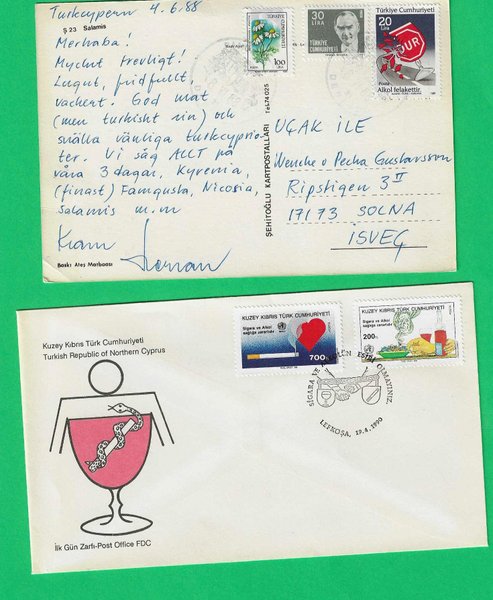 Turkcypern 4.6.88
Ş 23 Salamis
Merhaba!
Mycket trevligt!
Lugnt, fridfullt,
vackert. God mat
(men turkisht vin) och
snälla vänliga turkcyprio-
ter. Vi såg ALLT på
våra 3 dagar, Kyrenia,
(finast) Famgusta, Nicosia,
Salamis m.m
Kram
Baskı Ateş Matbaası
ŞEHİTOĞLU KARTPOSTALLARI
TÜRKİYE CUMHURİYETİ
100
30
LİRA
TÜRKİYE CUMHURİYETİ
Türkiye Cumhuriyeti
20
Lira
DUR
Posta
Alkol felakettir.
UÇAK İLE
Wenche o Pecha Gustavsson
Ripstigen 3 II
17173 SOLNA
İSVEÇ
Kuzey Kıbrıs Türk Cumhuriyeti
Turkish Republic of Northern Cyprus
İlk Gün Zarfı-Post Office FDC
KUZEY KIBRIS TÜRK CUMHURİYETİ
Sigara ve Alkol
sağlığa zararlıdır
700
KUZEY KIBRIS TÜRK CUMHURİYETİ
Sigara ve Alkol
sağlığa zararlıdır
200
SİGARA VE ESİRİ OLMAYINIZ.
LEFKOŞA, 19.4.1990